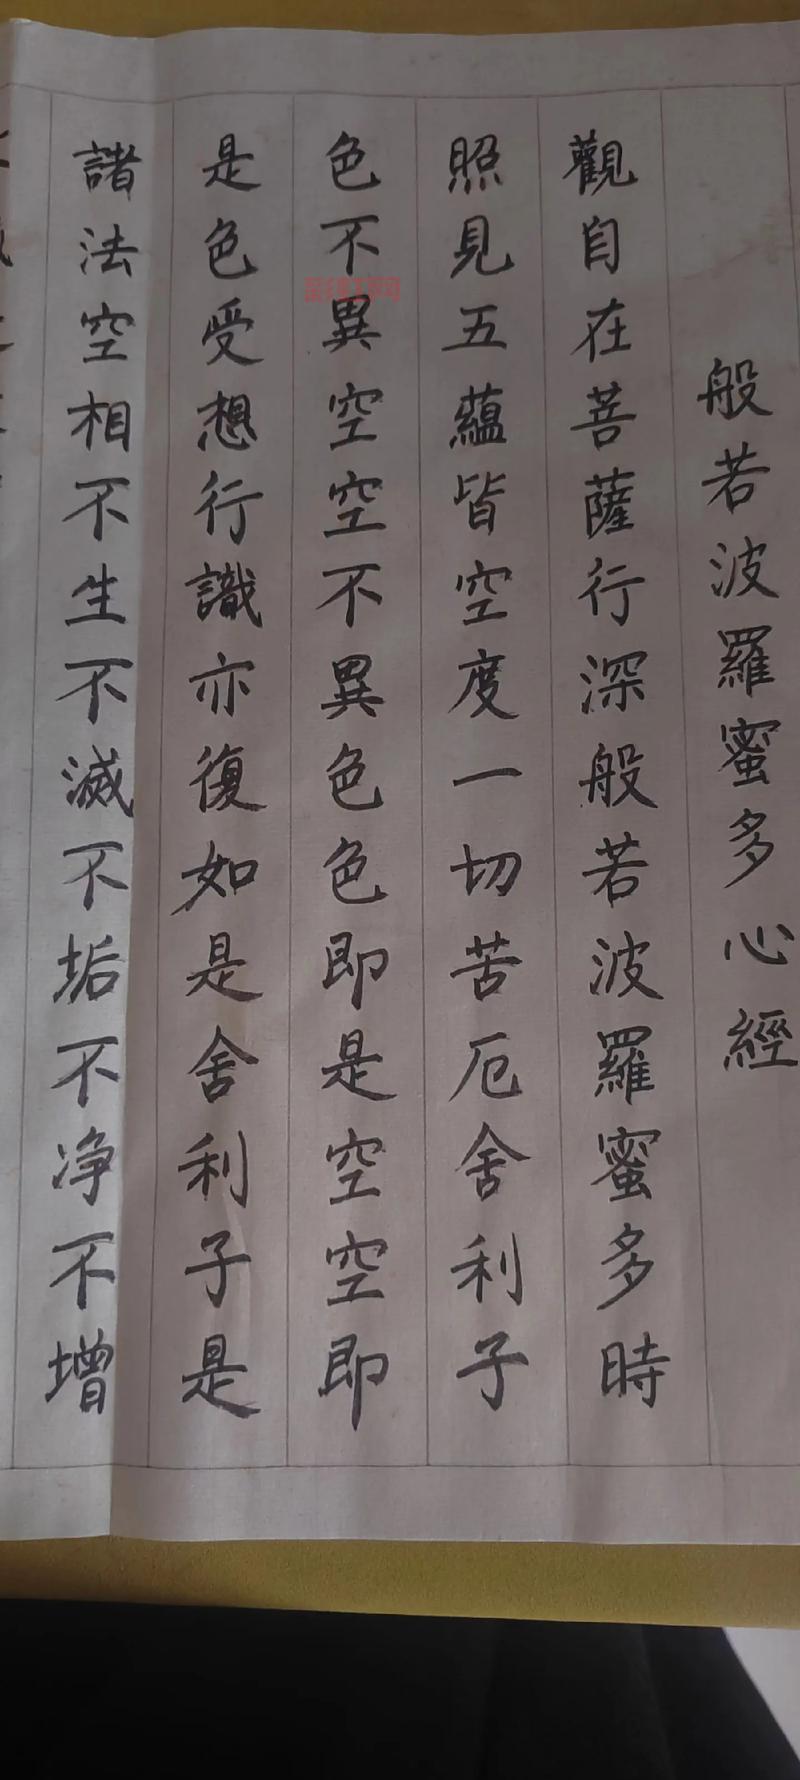 般若波羅蜜多心經
觀自在菩薩行深般若波羅蜜多時
照見五蘊皆空度一切苦厄舍利子
色不異空空不異色色即是空空即
是色受想行識亦復如是舍利子是
諸法空相不生不滅不垢不净不增